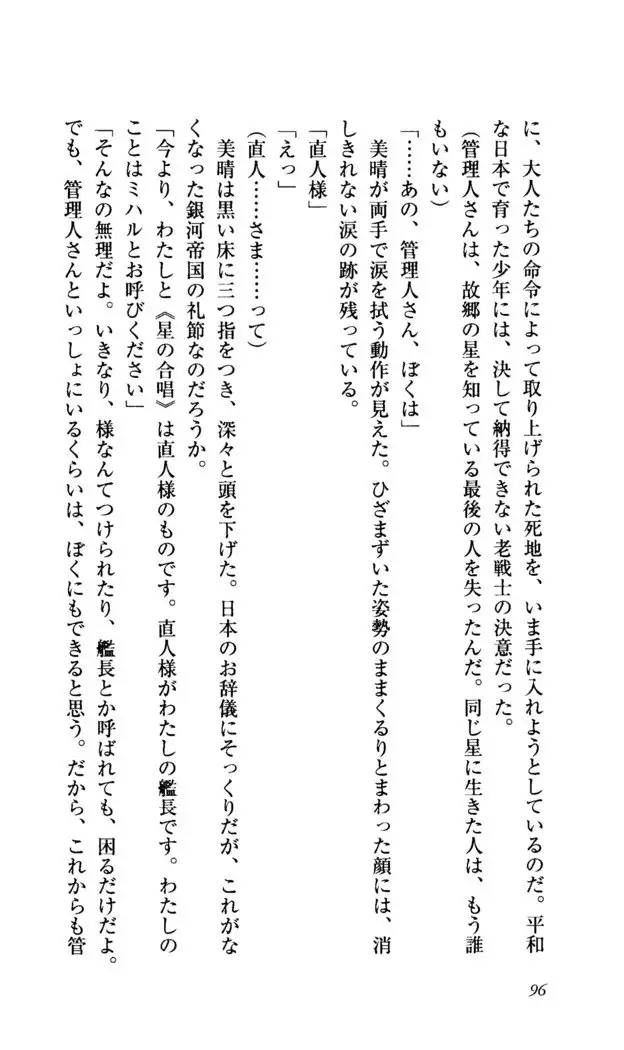 に、大人たちの命令によって取り上げられた死地を、いま手に入れようとしているのだ。平和
な日本で育った少年には、決して納得できない老戦士の決意だった。
（管理人さんは、故郷の星を知っている最後の人を失ったんだ。同じ星に生きた人は、もう誰
もいない）
「……あの、管理人さん、ぼくは」
美晴が両手で涙を拭う動作が見えた。ひざまずいた姿勢のままくるりとまわった顔には、消
しきれない涙の跡が残っている。
「直人様」
「えっ」
（直人……さま……って）
美晴は黒い床に三つ指をつき、深々と頭を下げた。日本のお辞儀にそっくりだが、これがな
くなった銀河帝国の礼節なのだろうか。
「今より、わたしと《星の合唱》は直人様のものです。直人様がわたしの艦長です。わたしの
ことはミハルとお呼びください」
「そんなの無理だよ。いきなり、様なんてつけられたり、艦長とか呼ばれても、困るだけだよ。
でも、管理人さんといっしょにいるくらいは、ぼくにもできると思う。だから、これからも管
96